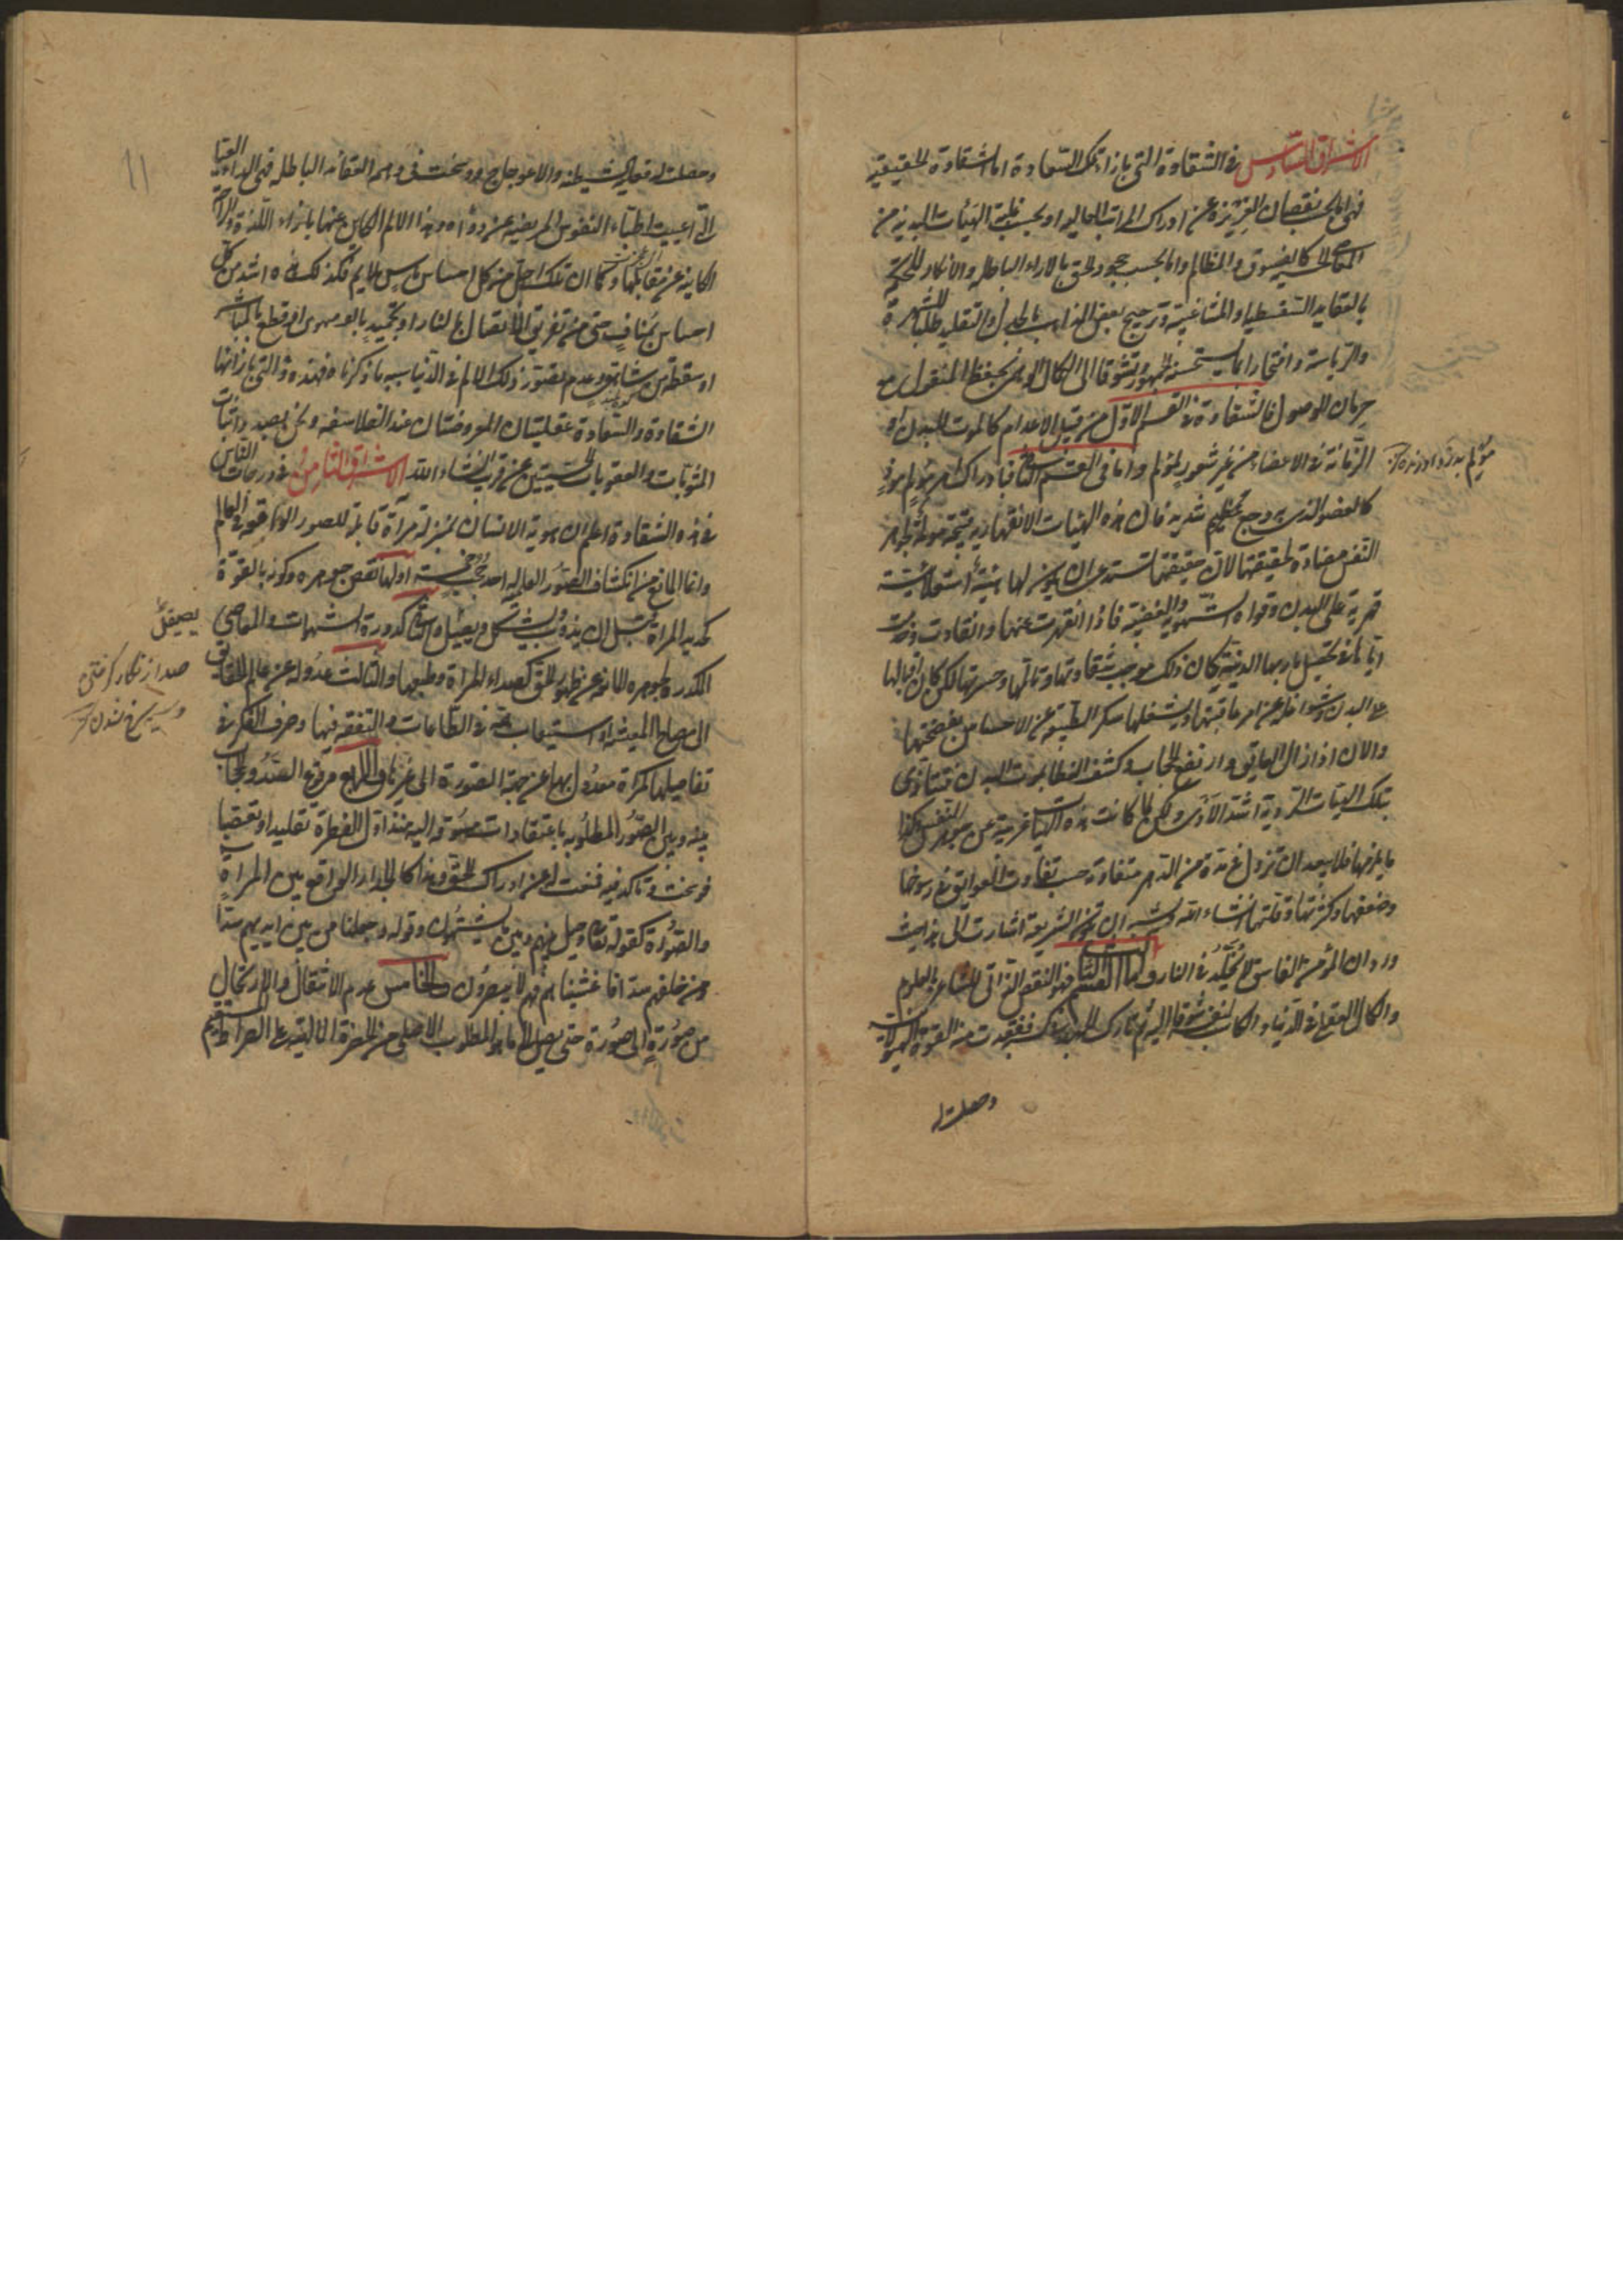 الاشراق السادس فى الشقاوة التى بازاء تلك السعادة اما الشقاوة الحقيقية
فهى اما بحسب نقصان الغريزة عن ادراك المراتب العالية او بحسب غلبة الهيئات البدنية من
المعاصى الحسية كالفسوق والمظالم واما بحسب جحود الحق بالاراء الباطلة والانكار للحكمة
بالعقايد السفسطية او المشاغبية وترجيح بعض المذاهب بالجدل والتقليد طلبا للشهرة
والرياسة وافتخارا بما يستحسنه الجمهور وتشوقا الى الكمال الوهمى بحفظ المنقول مع
حرمان الوصول فالشقاوة فى القسم الاول من قبيل الاعدام كالموت للبدن او
الزمانة فى الاعضاء من غير شعور بمؤلم واما فى القسم الثانى فبادراك امر مؤلم موذ
كالعضو الذى به وجع عظيم شديد فان هذه الهيئات الانقهارية قبيحة مولمة لجوهر
النفس مضادة لحقيقتها لان حقيقتها تستدعى ان يكون لها هيئة استعلائية
قهرية على البدن وقواه الشهوية والغضبية فاذا انقهرت عنها وانقادت وخدمت
اياها فى تحصيل مآربها الدنية كان ذلك موجب شقاوتها وتالمها وحسرتها لكن كان اقبالها
على البدن وشواغله عن امر عاقبتها ويشغلها سكر الطبيعة عن الاحساس بفضيحتها
والان اذا زال العايق وارتفع الحجاب وكشف الغطا بموت البدن فتتاذى
بتلك الهيئات الردية اشد الاذى ولكن لما كانت هذه الهيئات غريبة عن جوهر النفس وكذا
ما يلزمها فلا يبعد ان تزول فى مدة من الدهر متفاوتة حسب تفاوت العوايق فى رسوخها
وضعفها وكثرتها وقلتها انشاء الله ويشبه ان تكون الشريعة اشارت الى هذا حيث
ورد ان المؤمن الفاسق لا يخلد فى النار واما القسم الثالث فهو النقص الذاتى للشاعر بالعلوم
والكمال العقلى فى الدنيا والكاسب لنفسه شوقا اليه ثم تارك الجهد فى كسبه ففقدت منه القوة الهيولانية
وحصلت له
وحصلت له فعلية الشيطنة والاعوجاج ورسخت فى وهمه العقائد الباطلة فهى الداء العياء
التى اعييت اطباء النفوس المريضة عن دوائه وهذا الالم الكاين عنها بازاء اللذة والراحة
الكاينة عن مقابلها وكما ان تلك اجل من كل احساس بامر ملايم فكذلك هذه اشد من كل
احساس بمناف حسى من تفريق الاتصال بالنار او تجميد بالزمهرير او قطع بالمناشير
او سقطة من شاهق وعدم تصور ذلك الالم فى الدنيا سببه ما ذكرناه فهذه والتى بازائها
الشقاوة والسعادة عقليتان المعروفتان عند الفلاسفه ونحن بصدد اثبات
المثوبات والعقوبات الحسيتين عن قريب انشاء الله الاشراق الثامن فى درجات الناس
فى هذه الشقاوة اعلم ان هوية الانسان بمنزلة مرآة قابلة للصور الواقعة فى العالم
وانما المانع من انكشاف الصور العالية احد حجب خمسة اولها نقص جوهره وكونه بالقوة
كحديد المرآة قبل ان يذوب ويشكل ويصيقل والثانى كدورة الشهوات والمعاصى
المكدرة لجوهره المانعة عن ظهور الحق كصداء المرآة وطبعها والثالث عدوله عن عالم الحقايق
الى مصالح المعيشة او استيعاب همه فى الطاعات والتفقه فيها وصرف الفكر فى
تفاصيلها كمرآة معدول بها عن جهة الصورة الى غيرها والرابع وقوع السد والحجاب
بينه وبين الصور المطلوبة باعتقادات سبقت اليه منذ اول الفطرة تقليدا وتعصبا
فرسخت وتأكدت فيه فمنعت له عن ادراك الحق وهذا كالجدار الواقع بين المرآة
والصورة كقوله تعالى وحيل بينهم وبين ما يشتهون وقوله وجعلنا من بين ايديهم سدا
ومن خلفهم سدا فاغشيناهم فهم لا يبصرون والخامس عدم الانتقال والارتحال
من صورة الى صورة حتى يصل الى ما هو المطلوب الاصلى من الحضرة الالهية على الصراط المستقيم
يصيقل
صدا زنگار گرفتن